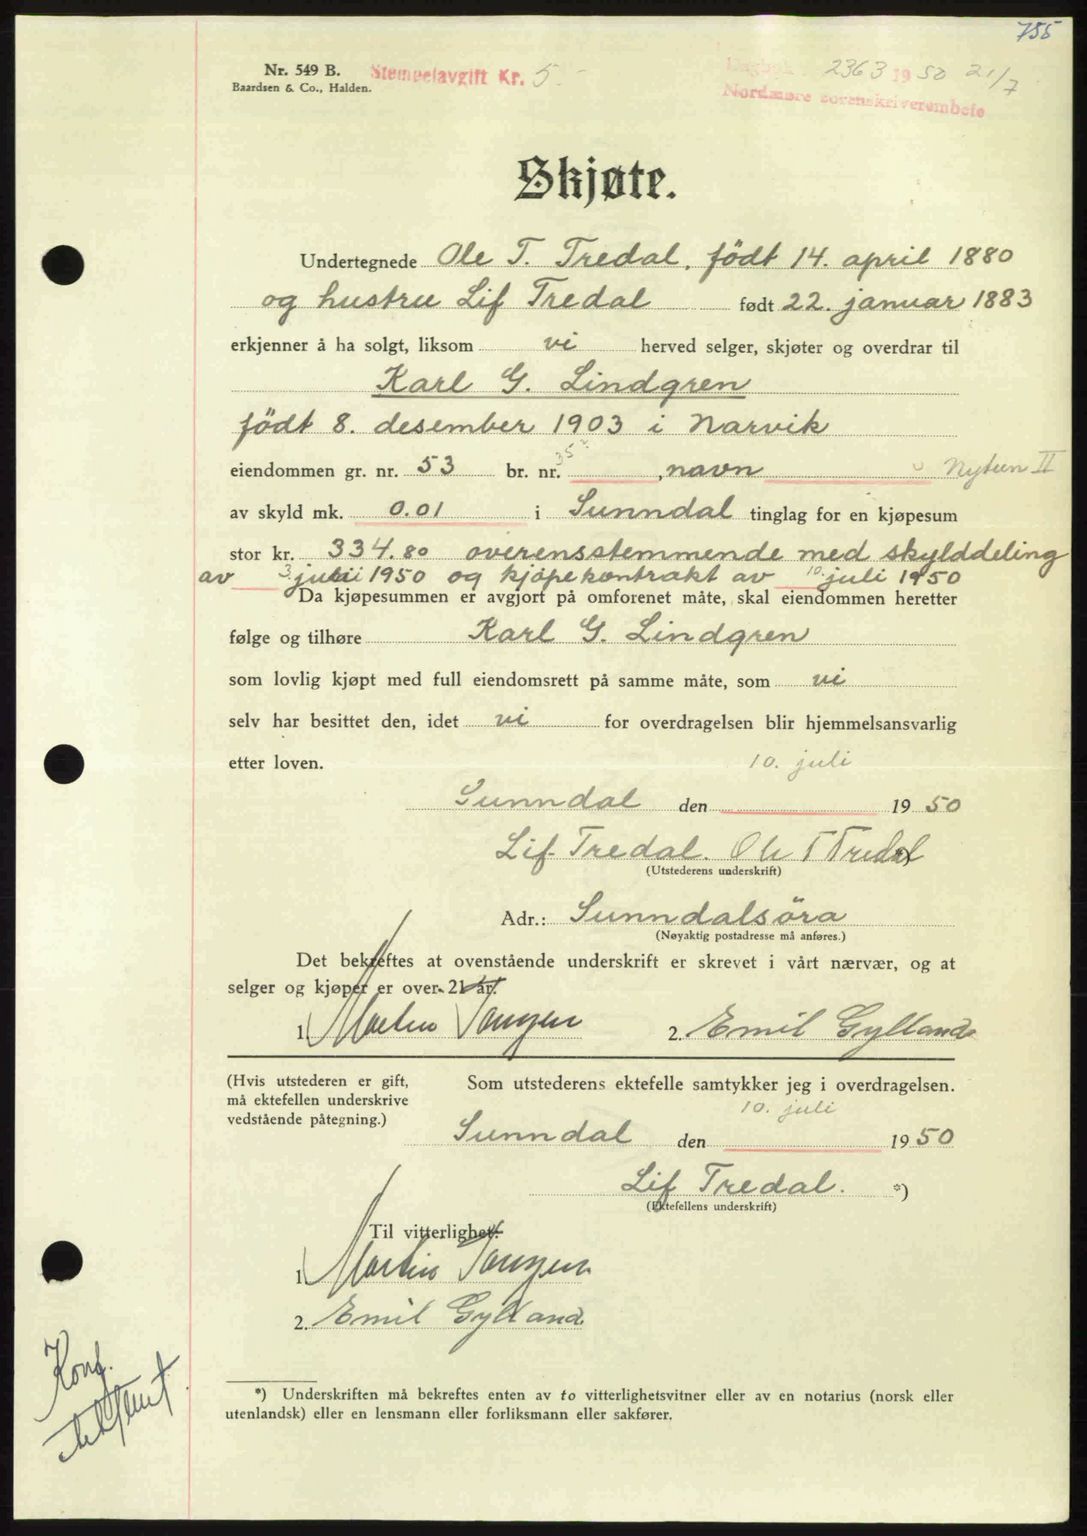 755
Nr. 549 B.
Baardsen & Co., Halden.
Stempelavgift Kr. 5.-
Dagbok 2363 1950 21/7
Nordmøre sorenskriverembete
Skjøte.
Undertegnede Ole T. Tredal, født 14. april 1880
og hustru Lif Tredal født 22. januar 1883
erkjenner å ha solgt, liksom vi herved selger, skjøter og overdrar til
Karl G. Lindgren
född 8. desember 1903 i Narvik
eiendommen gr. nr. 53 br. nr. 353, navn Nytun II
av skyld mk. 0.01 i Sunndal tinglag for en kjøpesum
stor kr. 334.80 overensstemmende med skylddeling
av 3. juli 1950 og kjøpekontrakt av 10. juli 1950
Da kjøpesummen er avgjort på omforenet måte, skal eiendommen heretter
følge og tilhøre Karl G. Lindgren
som lovlig kjøpt med full eiendomsrett på samme måte, som vi
selv har besittet den, idet vi for overdragelsen blir hjemmelsansvarlig
etter loven.
Sunndal den 10. juli 1950
Lif Tredal. Ole T Tredal *)
(Utstederens underskrift)
Adr.: Sunndalsöra
(Nøyaktig postadresse må anføres.)
Det bekreftes at ovenstående underskrift er skrevet i vårt nærvær, og at
selger og kjøper er over 21 år.
1. Martin 2. Emil Gylland
(Hvis utstederen er gift,
må ektefellen underskrive
vedstående påtegning.)
Som utstederens ektefelle samtykker jeg i overdragelsen.
Sunndal den 10. juli 1950
Lif Tredal. *)
(Ektefellens underskrift)
Til vitterlighet:
1. Martin
2. Emil Gylland
Konf.
*) Underskriften må bekreftes enten av to vitterlighetsvitner eller av en notarius (norsk eller
utenlandsk) eller en lensmann eller forliksmann eller sakfører.